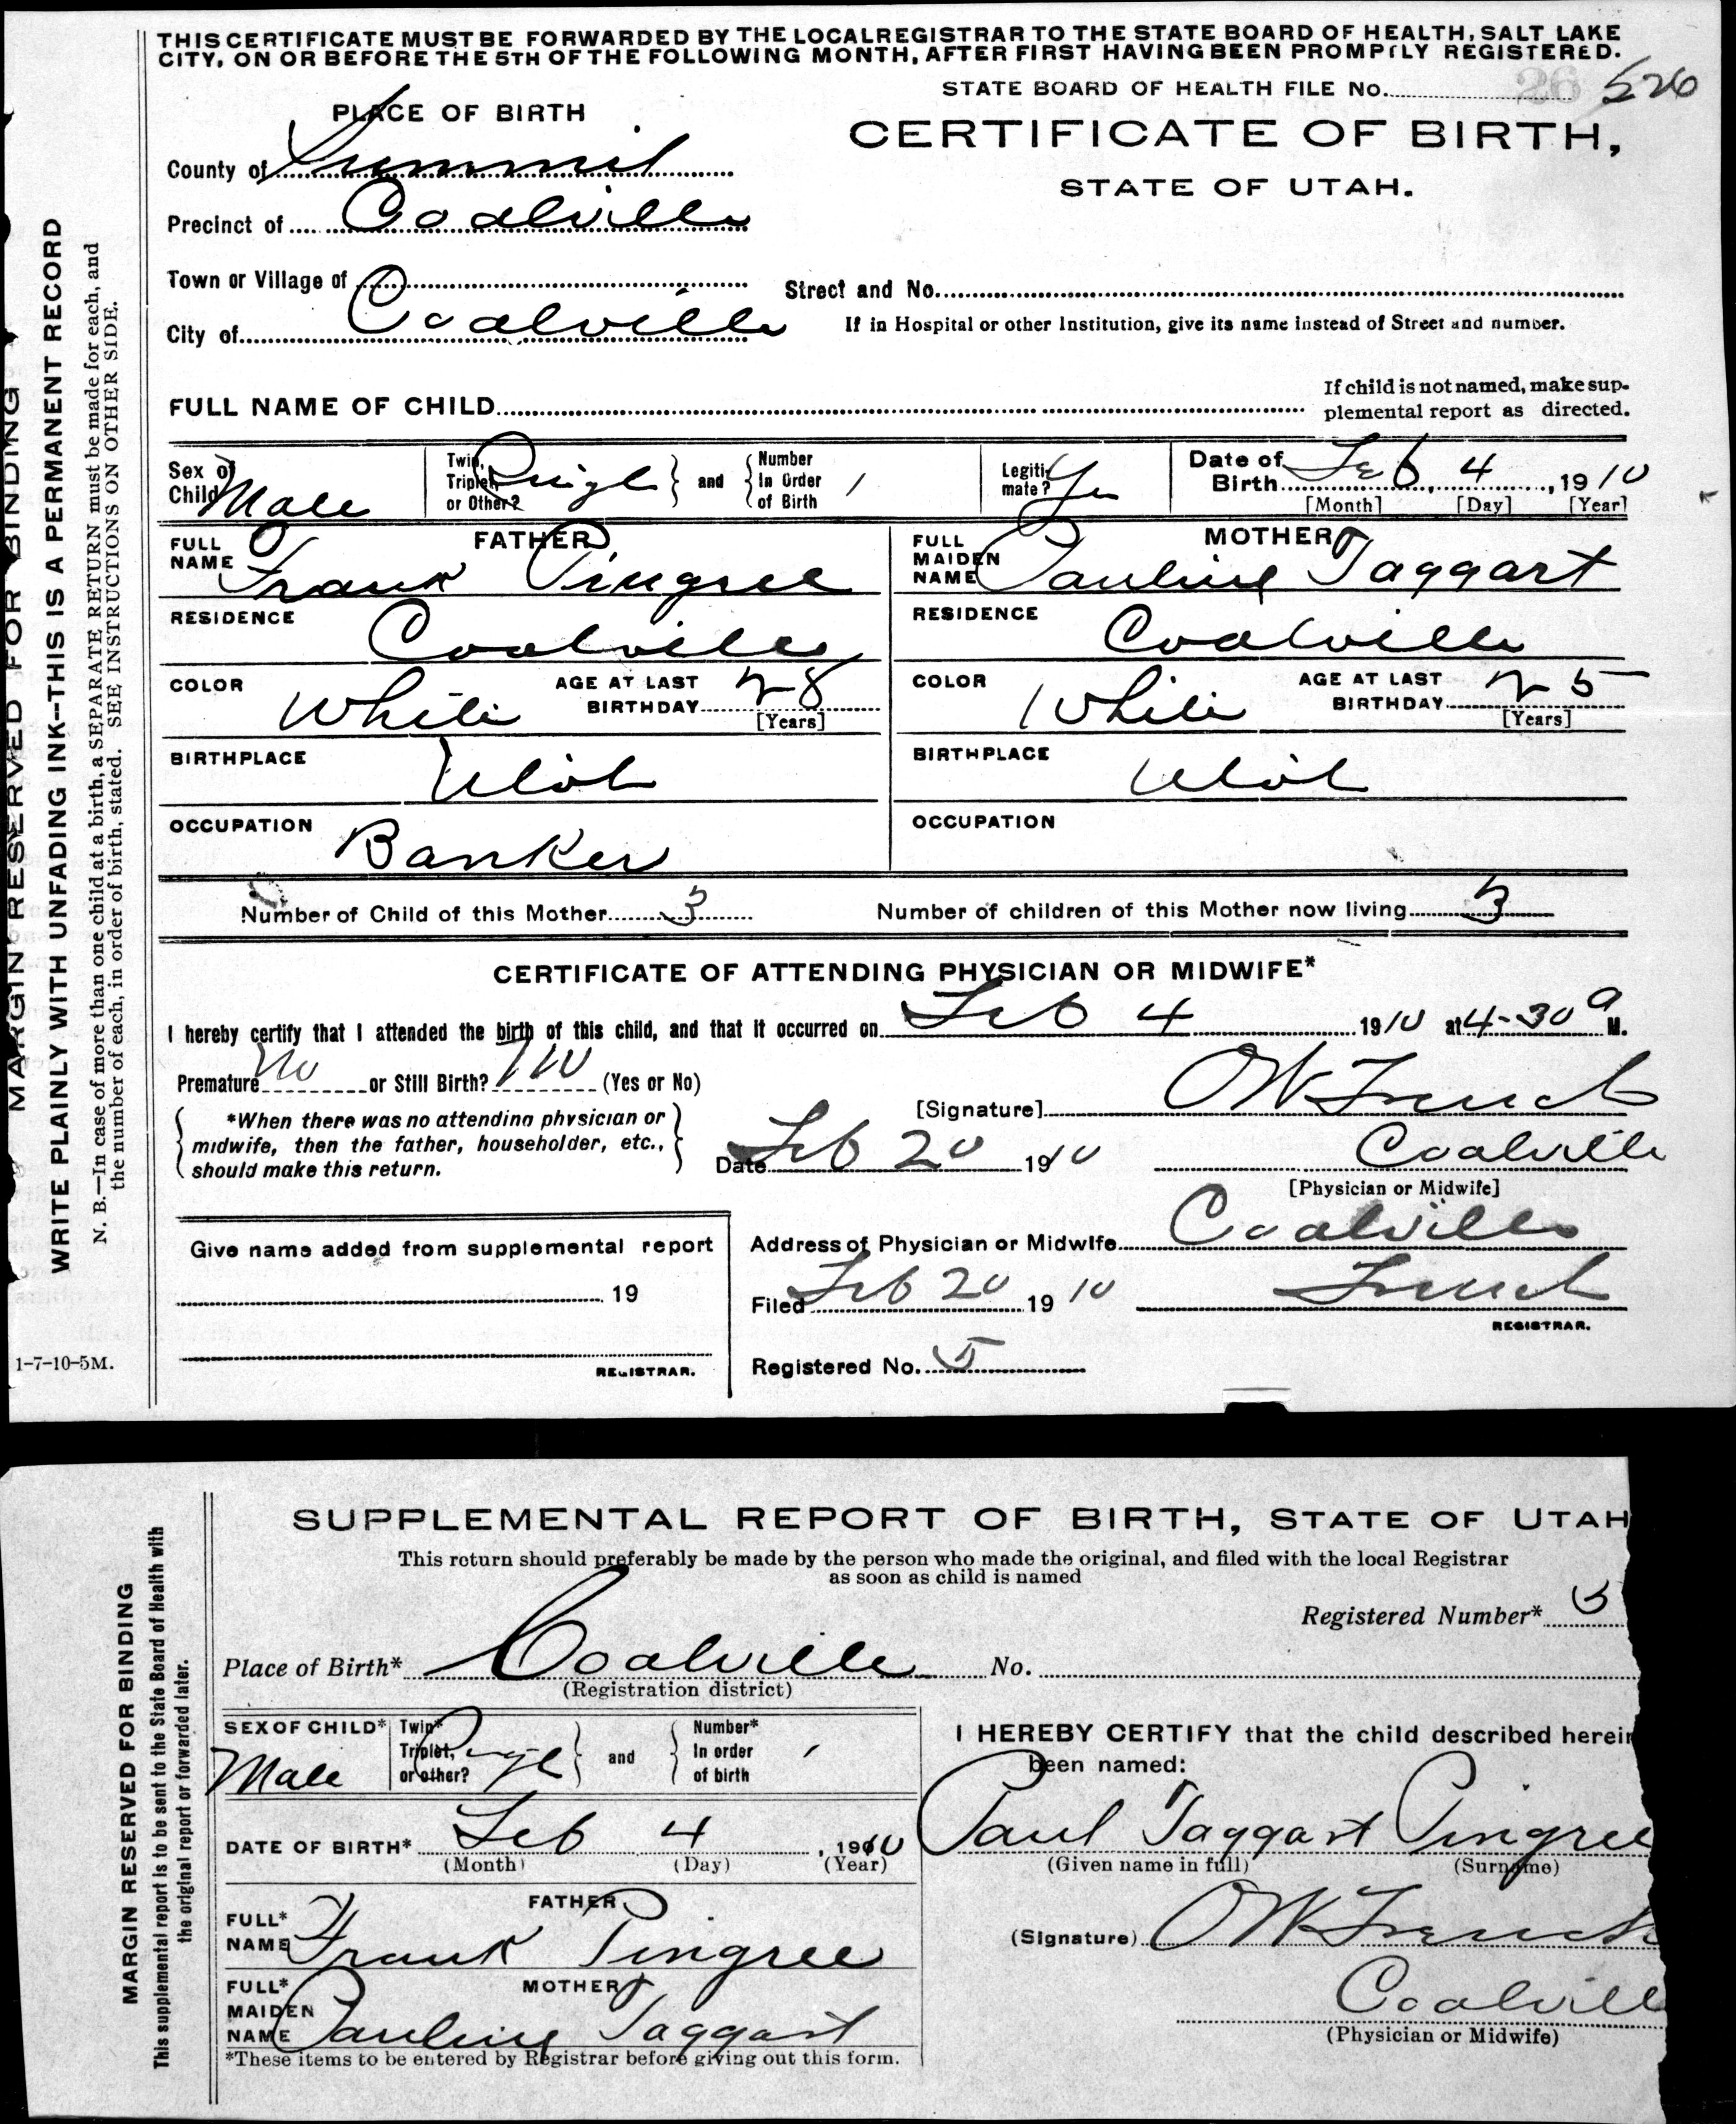 THIS CERTIFICATE MUST BE FORWARDED BY THE LOCAL REGISTRAR TO THE STATE BOARD OF HEALTH, SALT LAKE
CITY, ON OR BEFORE THE 5TH OF THE FOLLOWING MONTH, AFTER FIRST HAVING BEEN PROMPTLY REGISTERED.
STATE BOARD OF HEALTH FILE No. 26 526
PLACE OF BIRTH
CERTIFICATE OF BIRTH,
STATE OF UTAH.
County of Summit
Precinct of Coalville
Town or Village of
Street and No.
City of Coalville
If in Hospital or other Institution, give its name instead of Street and number.
FULL NAME OF CHILD
If child is not named, make sup-
plemental report as directed.
Sex of Child Male
Twin, Triplet, or Other? Single and Number In Order of Birth 1
Legiti- mate? Yes
Date of Birth Feb 4, 1910
[Month] [Day] [Year]
FATHER
FULL NAME Frank Pingree
MOTHER
FULL MAIDEN NAME Pauline Taggart
RESIDENCE Coalville
RESIDENCE Coalville
COLOR White AGE AT LAST BIRTHDAY 28 [Years]
COLOR White AGE AT LAST BIRTHDAY 25 [Years]
BIRTHPLACE Utah
BIRTHPLACE Utah
OCCUPATION Banker
OCCUPATION
Number of Child of this Mother 3 Number of children of this Mother now living 3
CERTIFICATE OF ATTENDING PHYSICIAN OR MIDWIFE*
I hereby certify that I attended the birth of this child, and that it occurred on Feb 4 1910 at 4-30 a M.
Premature No or Still Birth? No (Yes or No)
*When there was no attending physician or
midwife, then the father, householder, etc.,
should make this return.
[Signature] OW French
Date Feb 20 1910 Coalville
[Physician or Midwife]
Give name added from supplemental report
19
REGISTRAR.
Address of Physician or Midwife Coalville
Filed Feb 20 1910 French
REGISTRAR.
Registered No. 5
MARGIN RESERVED FOR BINDING
WRITE PLAINLY WITH UNFADING INK--THIS IS A PERMANENT RECORD
N. B.—In case of more than one child at a birth, a SEPARATE RETURN must be made for each, and
the number of each, in order of birth, stated. SEE INSTRUCTIONS ON OTHER SIDE.
1-7-10-5M.
SUPPLEMENTAL REPORT OF BIRTH, STATE OF UTAH
This return should preferably be made by the person who made the original, and filed with the local Registrar
as soon as child is named
Registered Number* 5
Place of Birth* Coalville No.
(Registration district)
SEX OF CHILD* Male
Twin* Triplet, or other? Single and Number* In order of birth 1
DATE OF BIRTH* Feb 4, 1910
(Month) (Day) (Year)
FATHER
FULL* NAME Frank Pingree
MOTHER
FULL* MAIDEN NAME Pauline Taggart
*These items to be entered by Registrar before giving out this form.
I HEREBY CERTIFY that the child described herein
been named:
Paul Taggart Pingree
(Given name in full) (Surname)
(Signature) OW French
Coalvill
(Physician or Midwife)
MARGIN RESERVED FOR BINDING
This supplemental report is to be sent to the State Board of Health with
the original report or forwarded later.